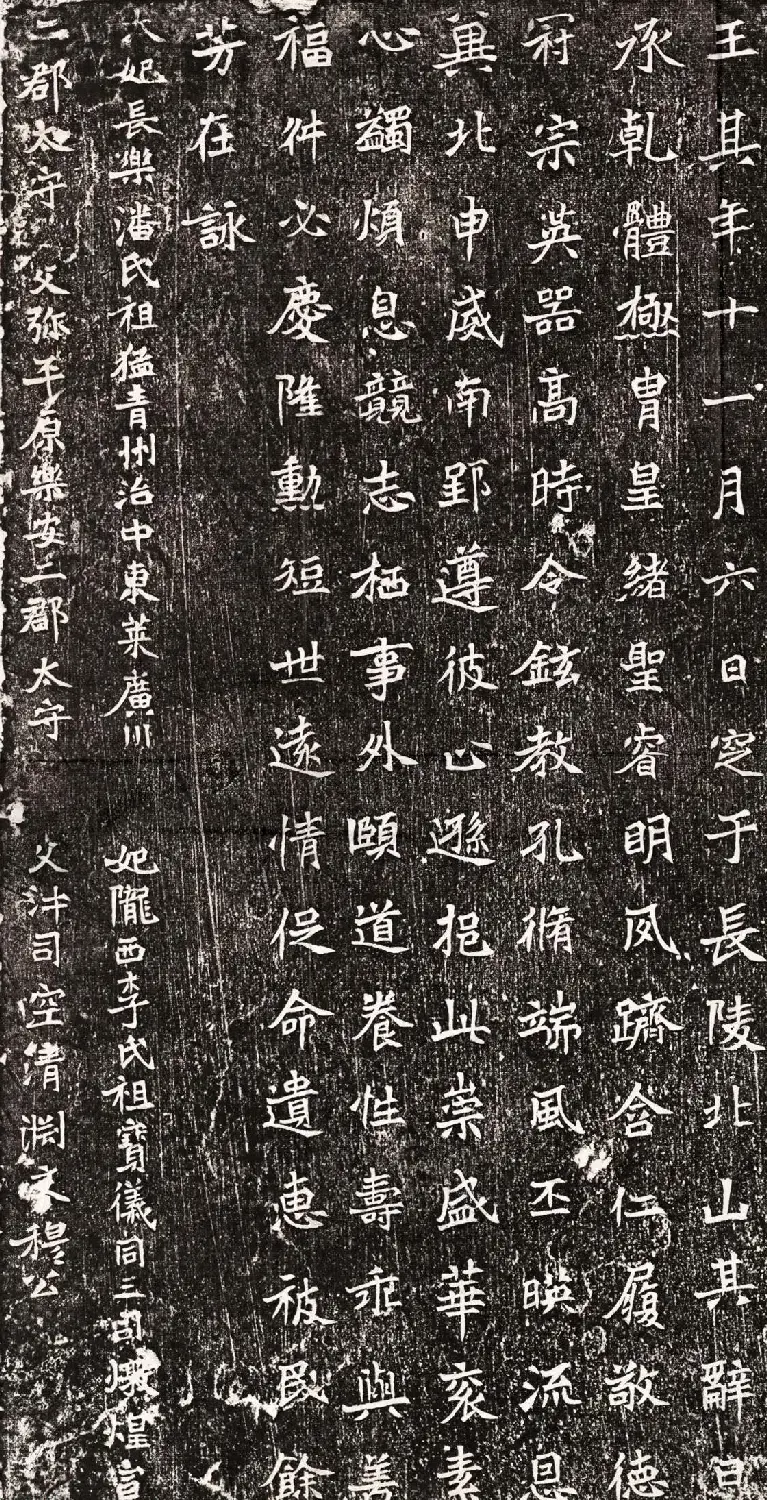 王其年十一月六日窆于長陵北山其辭曰
承乾體極胄皇緒聖睿明夙躋含仁履敬德
冠宗英器高時令鉉教孔脩端風丕映流恩
冀北申威南郢遵彼止遜挹此崇盛華衮素
心蠲煩息競志栖事外頤道養性壽乖與善
福舛必慶隆勳短世遠情促命遺惠被民餘
芳在詠
妃長樂潘氏祖猛青州治中東萊廣川
二郡太守 父弥平原樂安二郡太守
妃隴西李氏祖寶儀同三司燉煌宣
父沖司空清淵文穆公